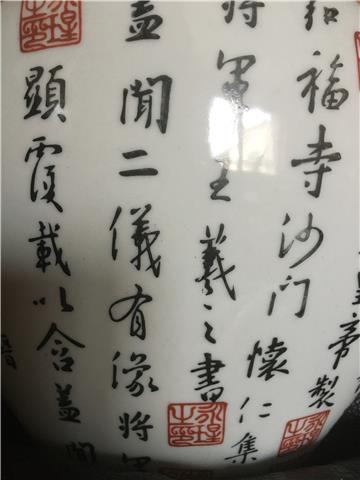 帝製
福寺沙门懷仁集
將軍王羲之書
盖聞二儀有像將軍
顯覆載以含盖聞